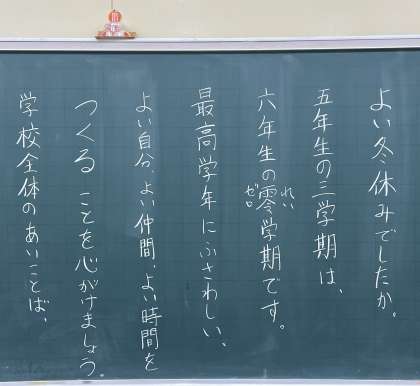 よい冬休みでしたか。
五年生の三学期は、
六年生の零学期です。
れい
ゼロ
最高学年にふさわしい、
よい自分、よい仲間、よい時間を
つくることを心がけましょう。
学校全体のあいことば、